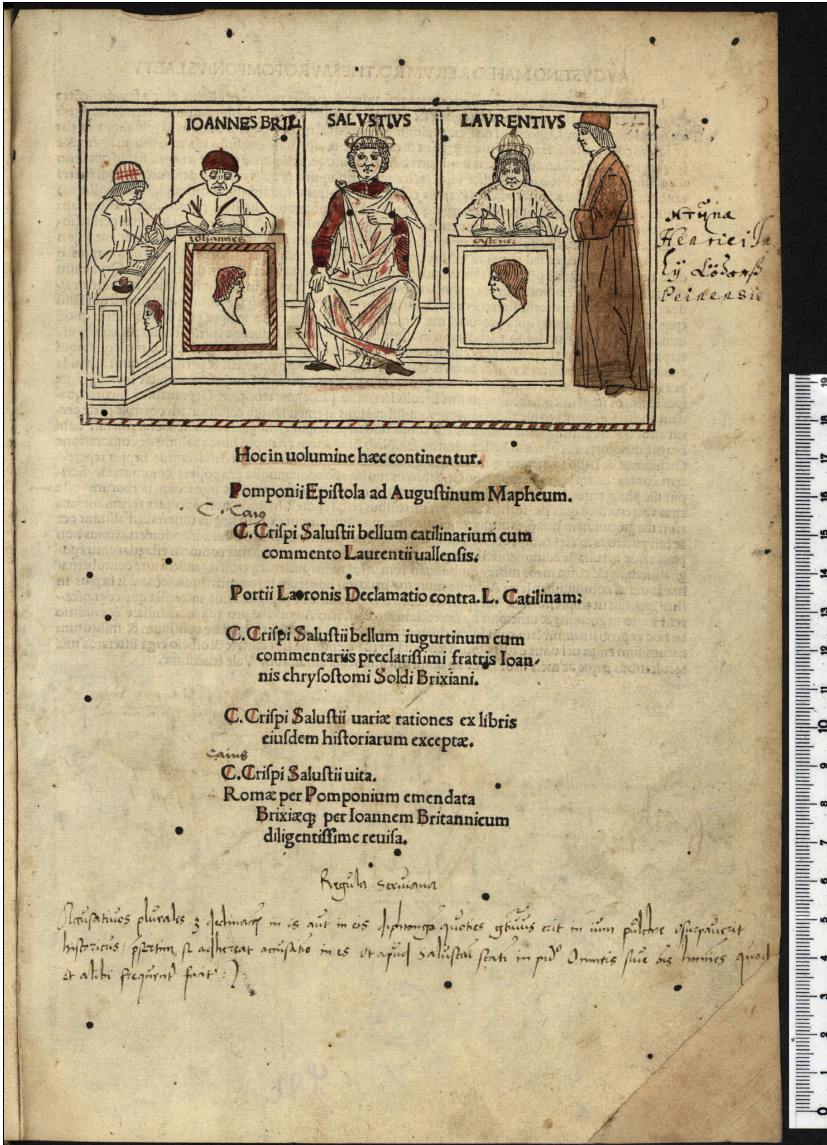 IOANNES BRIX
SALVSTIVS
LAVRENTIVS
Iohannes
Hoc in uolumine hæc continentur.
Pomponii Epiſtola ad Auguſtinum Mapheum.
C. Caiꝰ
C. Criſpi Saluſtii bellum catilinarium cum
commento Laurentii uallenſis.
Portii Latronis Declamatio contra. L. Catilinam:
C. Criſpi Saluſtii bellum iugurtinum cum
commentariis preclariſſimi fratris Ioan-
nis chryſoſtomi Soldi Brixiani.
C. Criſpi Saluſtii uariæ rationes ex libris
eiuſdem hiſtoriarum exceptæ.
Caius
C. Criſpi Saluſtii uita.
Romæ per Pomponium emendata
Brixiæq; per Ioannem Britannicum
diligentiſſime reuiſa.
Regula Seruiana
Accusativos plurales in is aut in eis diphtongo quoties erit in ium pulchre
historicus si adhereat accusatio in es ut apud Salustii stati in Omnis sive homines quod
et alibi frequent